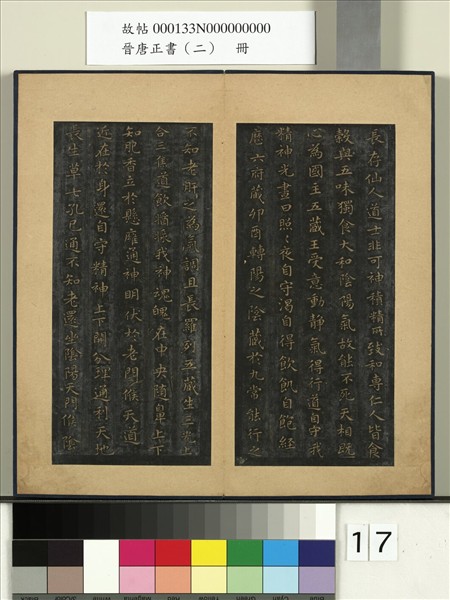 故帖 000133N000000000
晉唐正書（二） 冊
長存仙人道士非可神積精所致和專仁人皆食
穀與五味獨食大和陰陽氣故能不死天相既
心為國主五藏王受意動靜氣得行道自守我
精神光晝日照〻夜自守渴自得飲飢自飽經
歷六府藏卯酉轉陽之陰藏於九常能行之
不知老肝之為氣調且長羅列五藏生三光上
合三焦道飲漿我神魂魄在中央隨鼻上下
知肥香立於懸雍通神明伏於老門候天道
近在於身還自守精神上下開分理通利天地
長生草七孔已通不知老還坐陰陽天門候陰
17
Black 3/Color White Magenta Red Yellow Green Cyan Blue